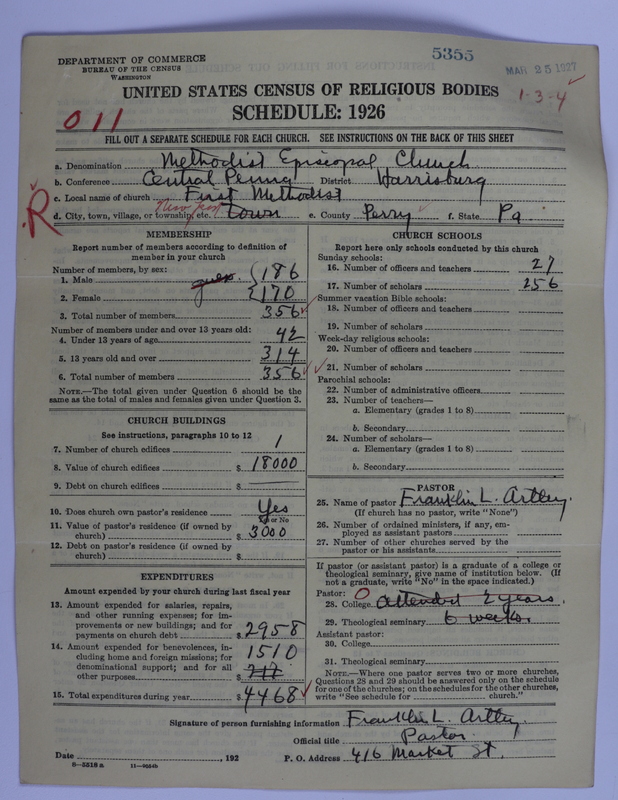 5355
MAR 25 1927
DEPARTMENT OF COMMERCE
BUREAU OF THE CENSUS
WASHINGTON
1-3-4
UNITED STATES CENSUS OF RELIGIOUS BODIES
SCHEDULE: 1926
011
FILL OUT A SEPARATE SCHEDULE FOR EACH CHURCH. SEE INSTRUCTIONS ON THE BACK OF THIS SHEET
a. Denomination Methodist Episcopal Church
b. Conference Central Penna District Harrisburg
c. Local name of church First Methodist
R
d. City, town, village, or township, etc. town e. County Perry f. State Pa
MEMBERSHIP
Report number of members according to definition of
member in your church
Number of members, by sex:
1. Male guess. 186
2. Female 170
3. Total number of members 356
Number of members under and over 13 years old:
4. Under 13 years of age 42
5. 13 years old and over 314
6. Total number of members 356
NOTE.—The total given under Question 6 should be the
same as the total of males and females given under Question 3.
CHURCH BUILDINGS
See instructions, paragraphs 10 to 12
7. Number of church edifices 1
8. Value of church edifices $ 18000
9. Debt on church edifices $
10. Does church own pastor's residence Yes
Yes or No
11. Value of pastor's residence (if owned by
church) $ 3000
12. Debt on pastor's residence (if owned by
church) $
EXPENDITURES
Amount expended by your church during last fiscal year
13. Amount expended for salaries, repairs,
and other running expenses; for im-
provements or new buildings; and for
payments on church debt $ 2958
14. Amount expended for benevolences, in-
cluding home and foreign missions; for
denominational support; and for all
other purposes $ 1510
15. Total expenditures during year $ 4468
CHURCH SCHOOLS
Report here only schools conducted by this church
Sunday schools:
16. Number of officers and teachers 27
17. Number of scholars 256
Summer vacation Bible schools:
18. Number of officers and teachers
19. Number of scholars
Week-day religious schools:
20. Number of officers and teachers
21. Number of scholars
Parochial schools:
22. Number of administrative officers
23. Number of teachers—
a. Elementary (grades 1 to 8)
b. Secondary
24. Number of scholars—
a. Elementary (grades 1 to 8)
b. Secondary
PASTOR
25. Name of pastor Franklin L. Artley.
(If church has no pastor, write "None")
26. Number of ordained ministers, if any, em-
ployed as assistant pastors
27. Number of other churches served by the
pastor or his assistants
If pastor (or assistant pastor) is a graduate of a college or
theological seminary, give name of institution below. (If
not a graduate, write "No" in the space indicated.)
Pastor: O
28. College attended 2 years.
29. Theological seminary 6 weeks.
Assistant pastor:
30. College
31. Theological seminary
NOTE.—Where one pastor serves two or more churches,
Questions 28 and 29 should be answered only on the schedule
for one of the churches; on the schedules for the other churches,
write "See schedule for church."
Signature of person furnishing information Franklin L. Artley
Official title Pastor.
Date , 192 P. O. Address 416 Market St.
8-5518 a 11-9054b